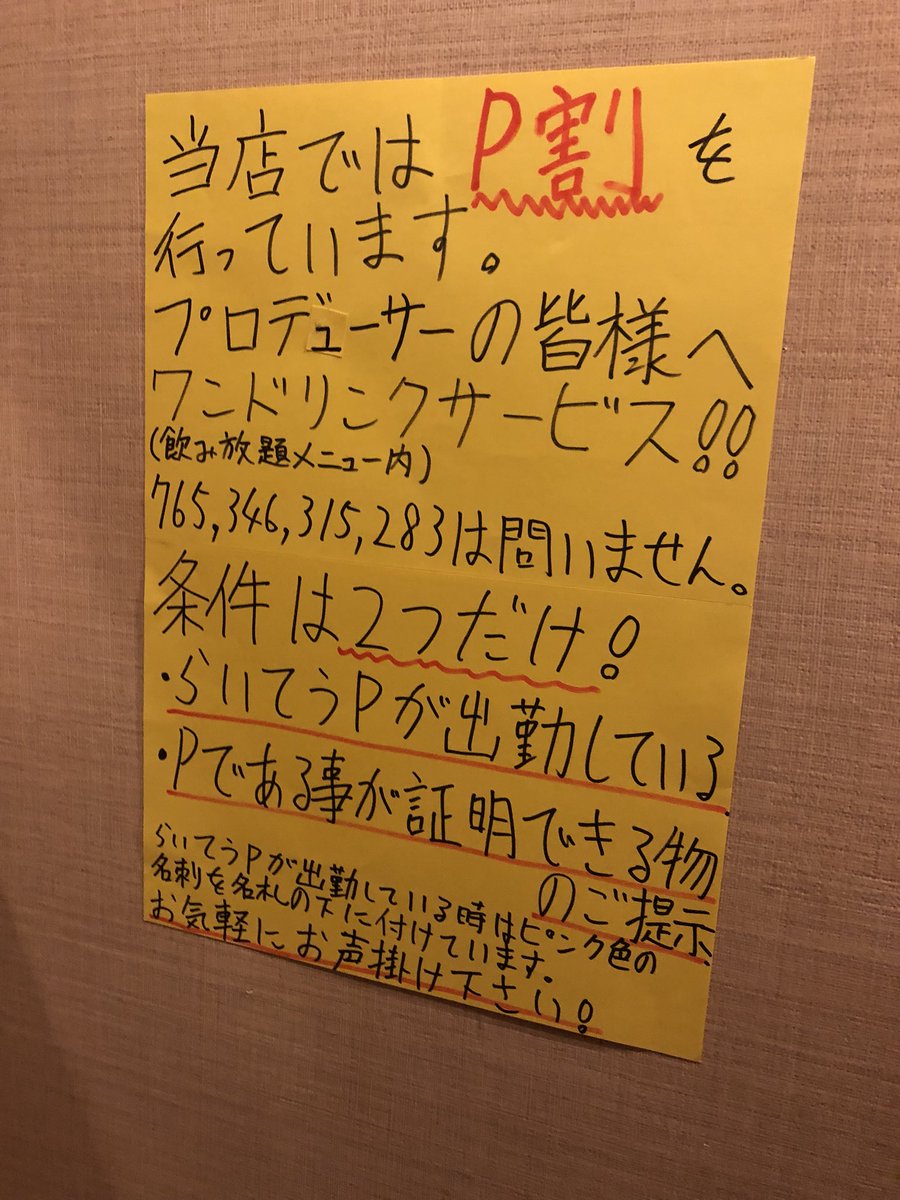 当店では P割 を
行っています。
プロデューサーの皆様へ
ワンドリンクサービス!!
(飲み放題メニュー内)
765,346,315,283は問いません。
条件は2つだけ!
・らいてうPが出勤している
・Pである事が証明できる物
のご提示
らいてうPが出勤している時はピンク色の
名刺を名札の下に付けています。
お気軽にお声掛け下さい!